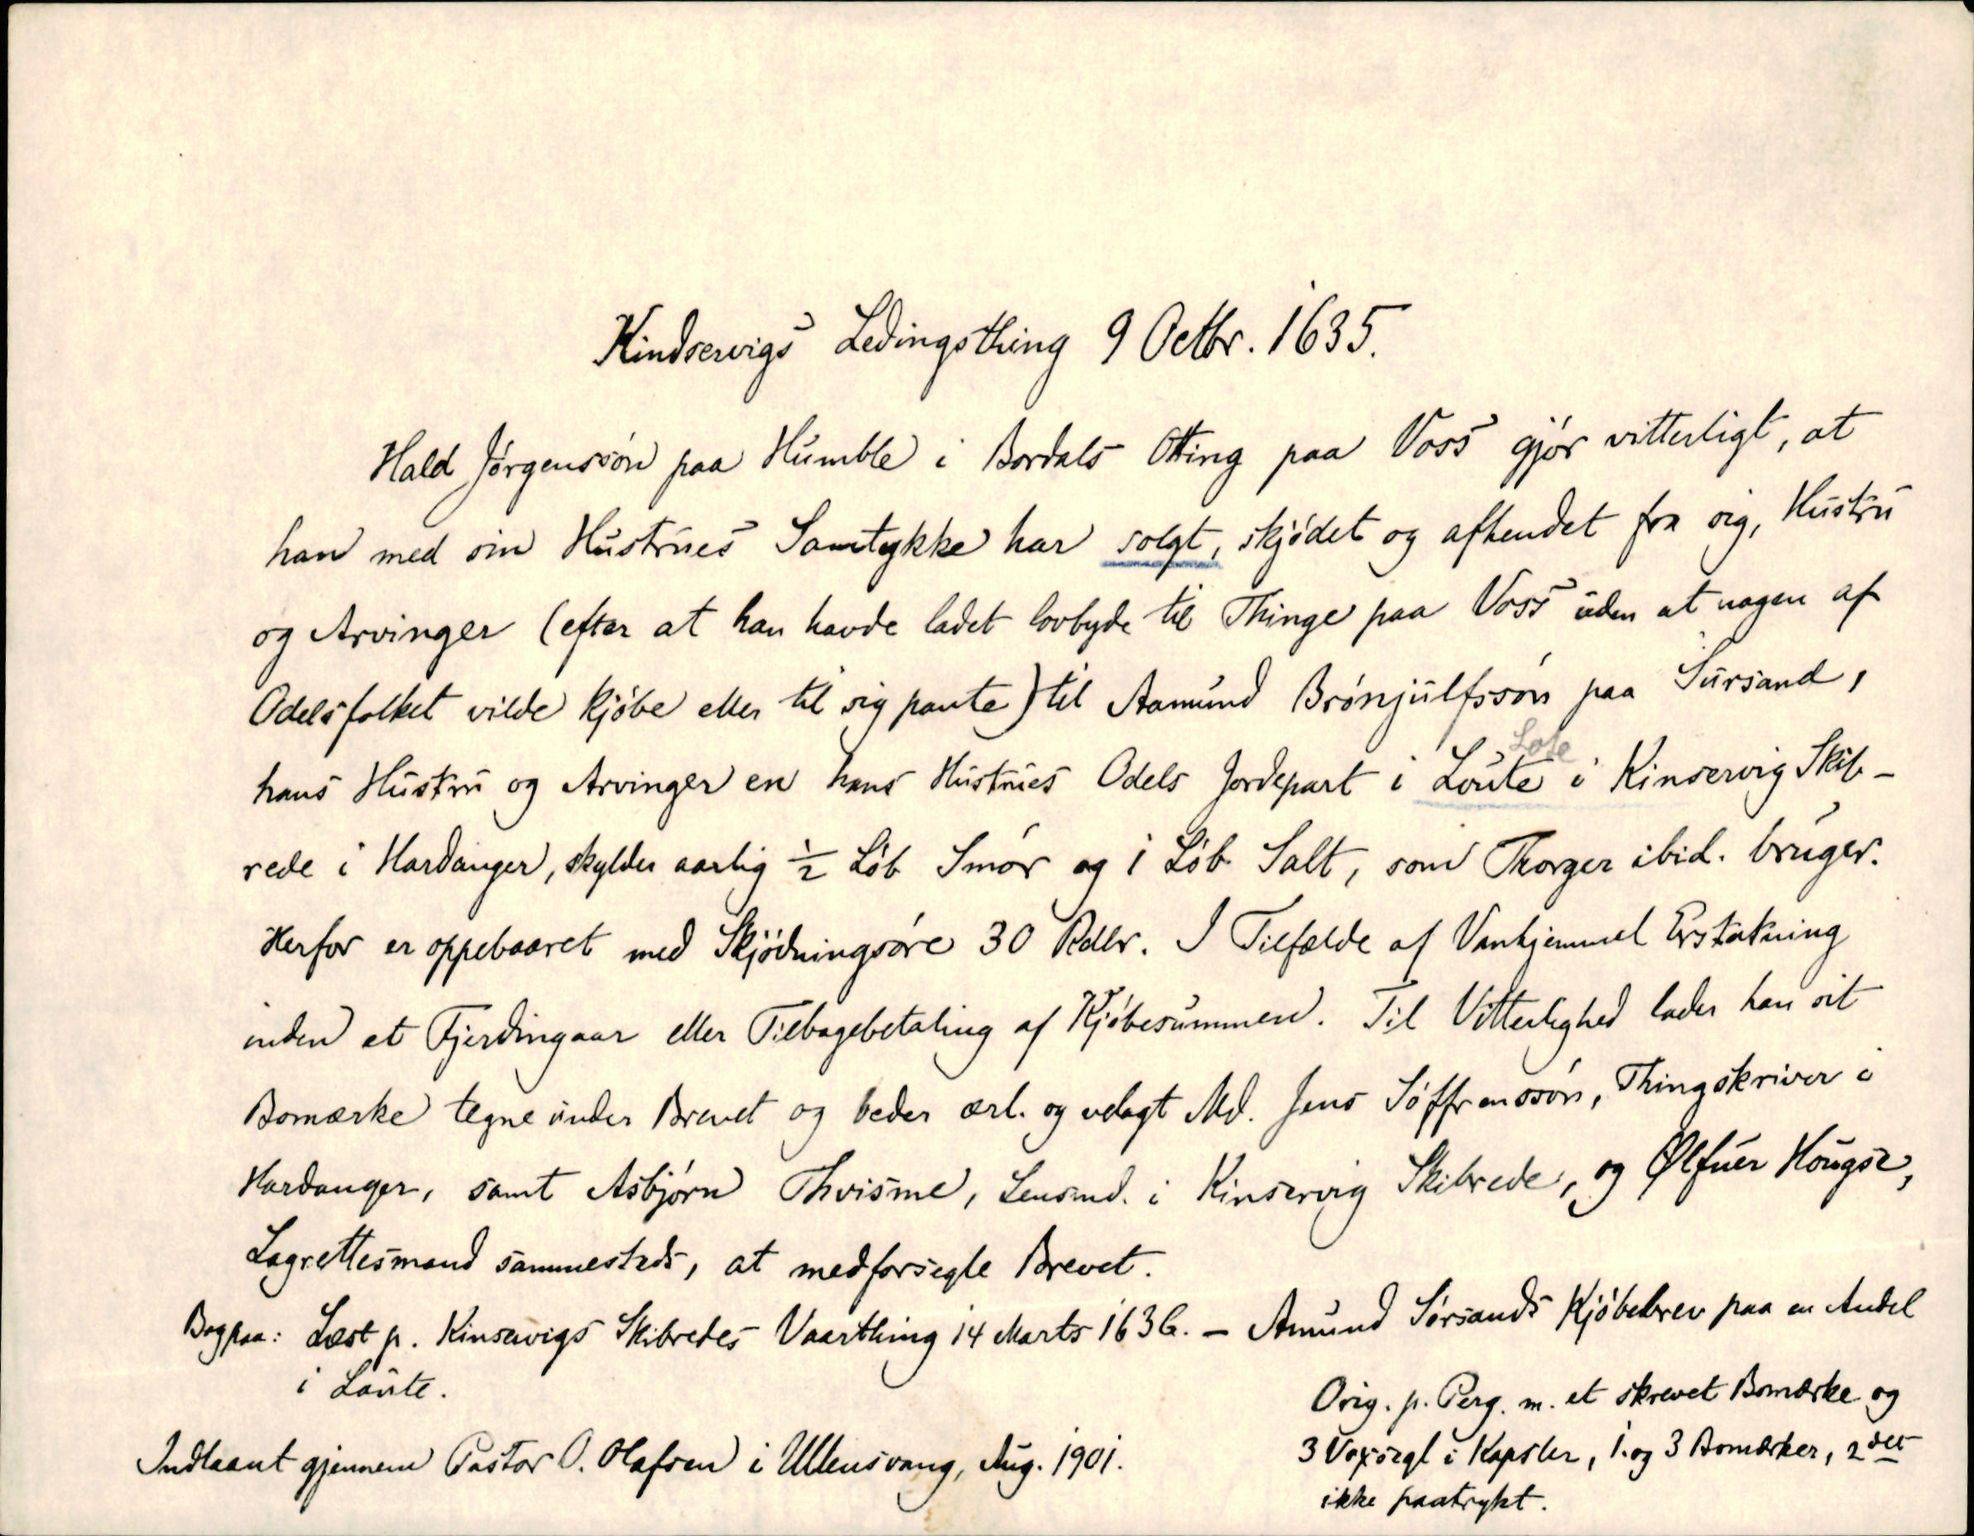 Kindservigs Ledingsthing 9 Octbr. 1635.
Hald Jörgenssön paa Humble i Bordals Otting paa Voss gjör vitterligt, at
han med sin Hustrues Samtykke har solgt, skjödet og afhendet fra sig, Hustru
og Arvinger (efter at han havde ladet lovbyde til Thinge paa Voss uden at nogen af
Odelsfolket vilde kjöbe eller til sig pante) til Aamund Brönjulfssön paa Sursand,
Lote
hans Hustru og Arvinger en hans Hustrues Odels Jordepart i Loute i Kinservig Skib-
rede i Hardanger, skylder aarlig ½ Löb Smör og 1 Löb Salt, som Thorger ibid. bruger.
Herfor er oppebaaret med Skjödningsöre 30 Rdlr. I Tilfælde af Vanhjemmel Erstatning
inden et Fjerdingaar eller Tilbagebetaling af Kjöbesummen. Til Vitterlighed lader han sit
Bomærke tegne under Brevet og beder ærl. og velagt Md. Jens Söffrenssön, Thingskriver i
Hardanger, samt Asbjörn Thvisme, Lensmd. i Kinservig Skibrede, og Ølfuer Hougse,
Lagrettesmand sammesteds, at medforsegle Brevet.
Bagpaa: Læst p. Kinservigs Skibredes Vaarthing 14 Marts 1636. - Amund Sörsands Kjöbebrev paa en Andel
i Loute.
Orig. p. Perg. m. et skrevet Bomærke og
3 Voxsegl i Kapsler, 1. og 3 Bomærker, 2det
ikke paatrykt.
Indlaant gjennem Pastor O. Olafsen i Ullensvang, Aug. 1901.